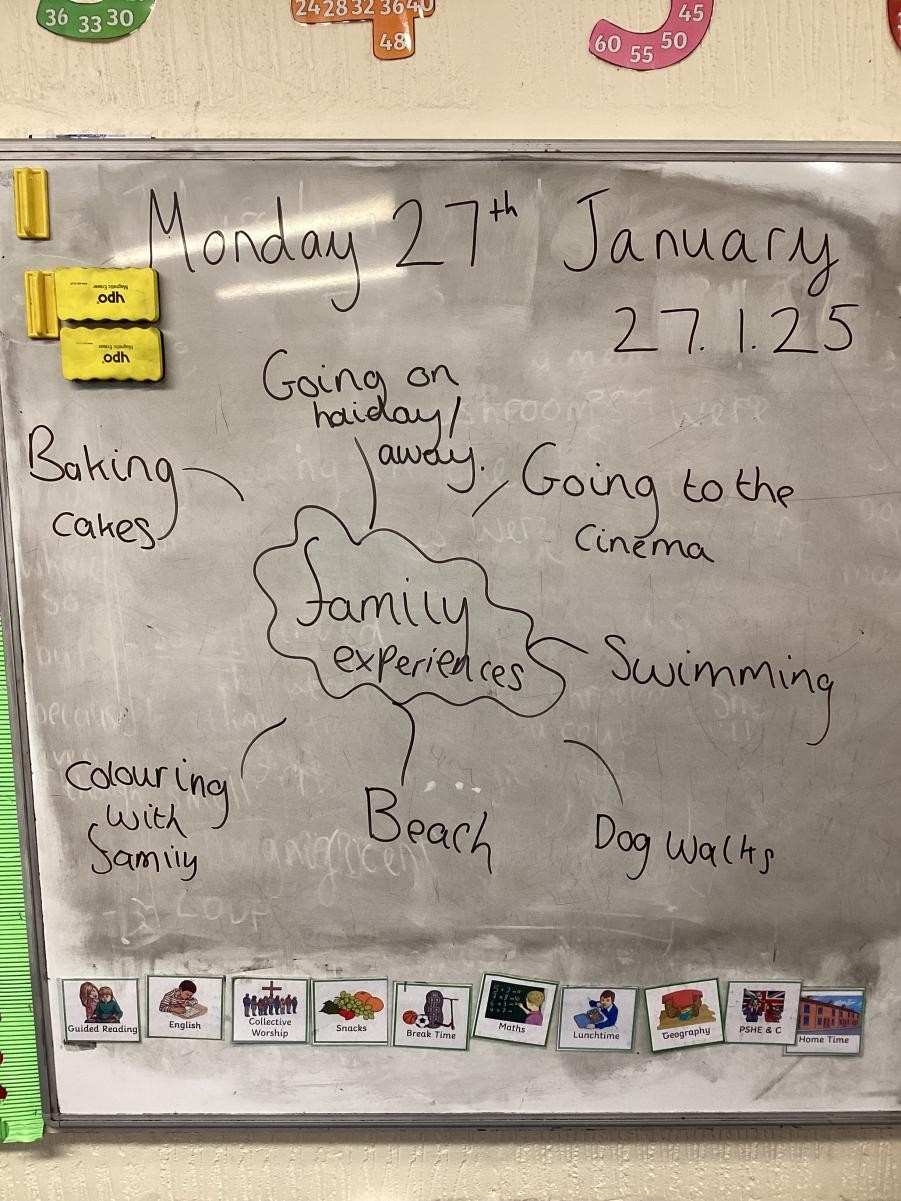 36 33 30
24 28 32 36 40
48
45
60 55 50
Monday 27th January
27.1.25
ypo
Magnetic Eraser
ypo
Magnetic Eraser
Going on
haiday/
away.
Baking
cakes
Going to the
cinema
family
experiences
Swimming
Colouring
with
family
Beach
Dog walks
Guided Reading
English
Collective
Worship
Snacks
Break Time
Maths
Lunchtime
Geography
PSHE & C
Home Time